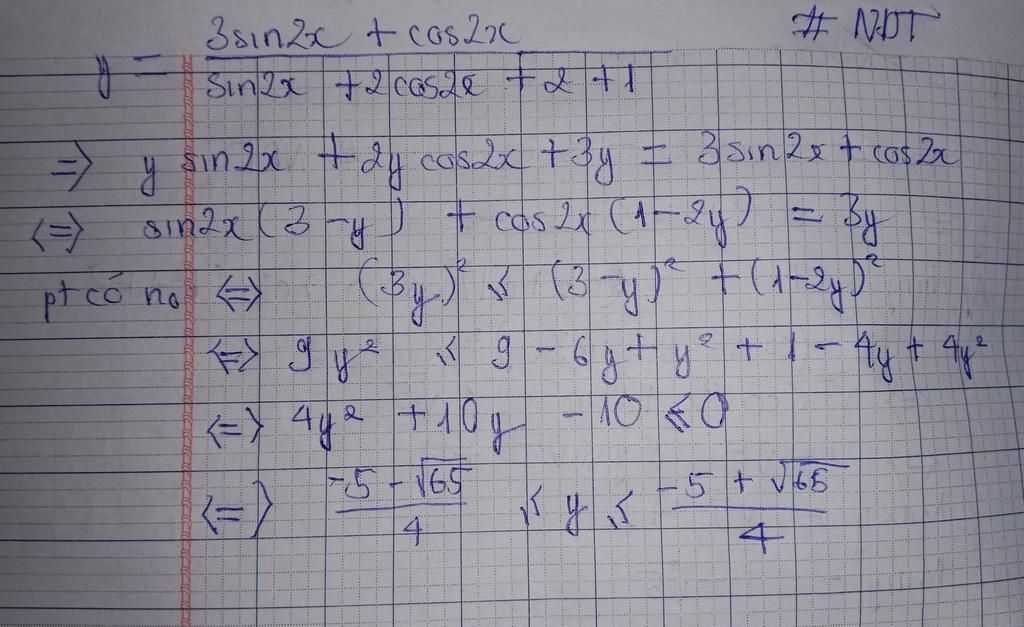 # NDT
y = (3sin2x + cos2x) / (sin2x + 2cos2x + 2 + 1)
=> y sin2x + 2y cos2x + 3y = 3sin2x + cos2x
<=> sin2x (3 - y) + cos2x (1 - 2y) = 3y
pt có no <=> (3y)² ≤ (3 - y)² + (1 - 2y)²
<=> 9y² ≤ 9 - 6y + y² + 1 - 4y + 4y²
<=> 4y² + 10y - 10 ≤ 0
<=> (-5 - √65) / 4 ≤ y ≤ (-5 + √65) / 4